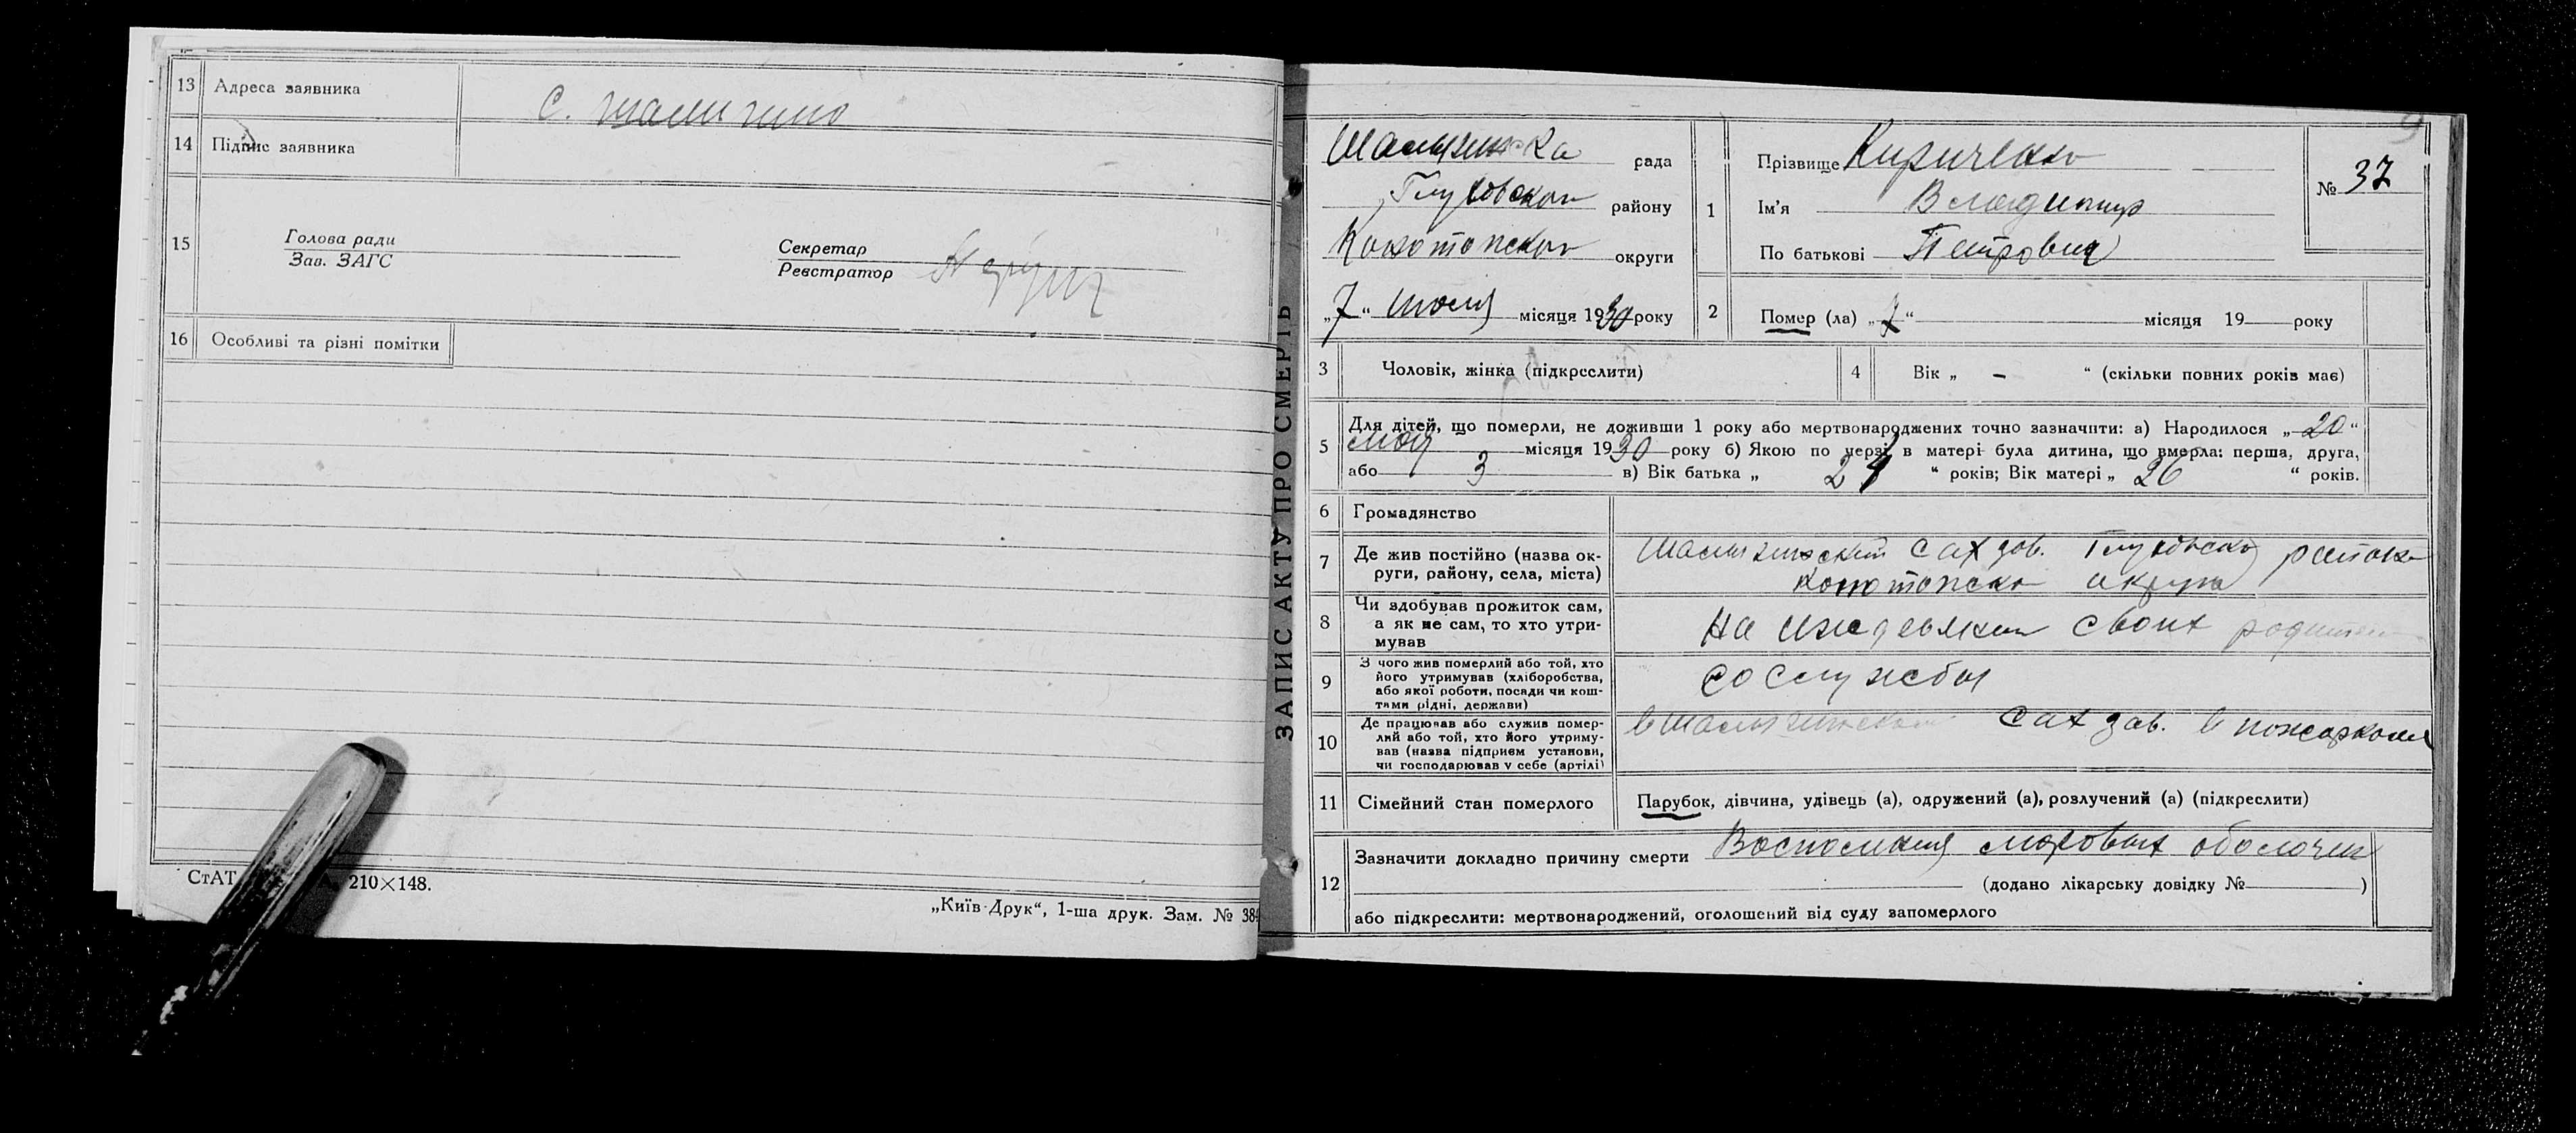 13 Адреса заявника с. Шалигино
14 Підпис заявника
15 Голова ради
Зав. ЗАГС
Секретар
Реєстратор
16 Особливі та різні помітки
СтАТ 210×148.
„Київ-Друк“, 1-ша друк. Зам. № 384
ЗАПИС АКТУ ПРО СМЕРТЬ
рада
Глуховского району
Конотопского округи
„7“ июля місяця 1930 року
1 Прізвище Кириченко
Ім'я Владимир
По батькові Петрович
№ 37
2 Помер (ла) „7“ місяця 19 року
3 Чоловік, жінка (підкреслити)
4 Вік „ – “ (скільки повних років має)
5 Для дітей, що померли, не доживши 1 року або мертвонароджених точно зазначити: а) Народилося „20“
мая місяця 1930 року б) Якою по черзі в матері була дитина, що вмерла: перша, друга,
або 3 в) Вік батька „ “ років; Вік матері „ 26 “ років.
6 Громадянство
7 Де жив постійно (назва округи, району, села, міста)
Шалыгинский сах зав. Глуховско района
Конотопско округа
8 Чи здобував прожиток сам,
а як не сам, то хто утри-
мував
На иждевении своих родителей
9 З чого жив померлий або той, хто
його утримував (хліборобства,
або якої роботи, посади чи кош-
тами рідні, держави)
со службы
10 Де працював або служив помер-
лий або той, хто його утриму-
вав (назва підприєм установи,
чи господарював у себе (артілі)
в Шалыгинском сах зав. в
11 Сімейний стан померлого Парубок, дівчина, удівець (а), одружений (а), розлучений (а) (підкреслити)
12 Зазначити докладно причину смерти Восполения мозговых оболочек
(додано лікарську довідку № )
або підкреслити: мертвонароджений, оголошений від суду запомерлого